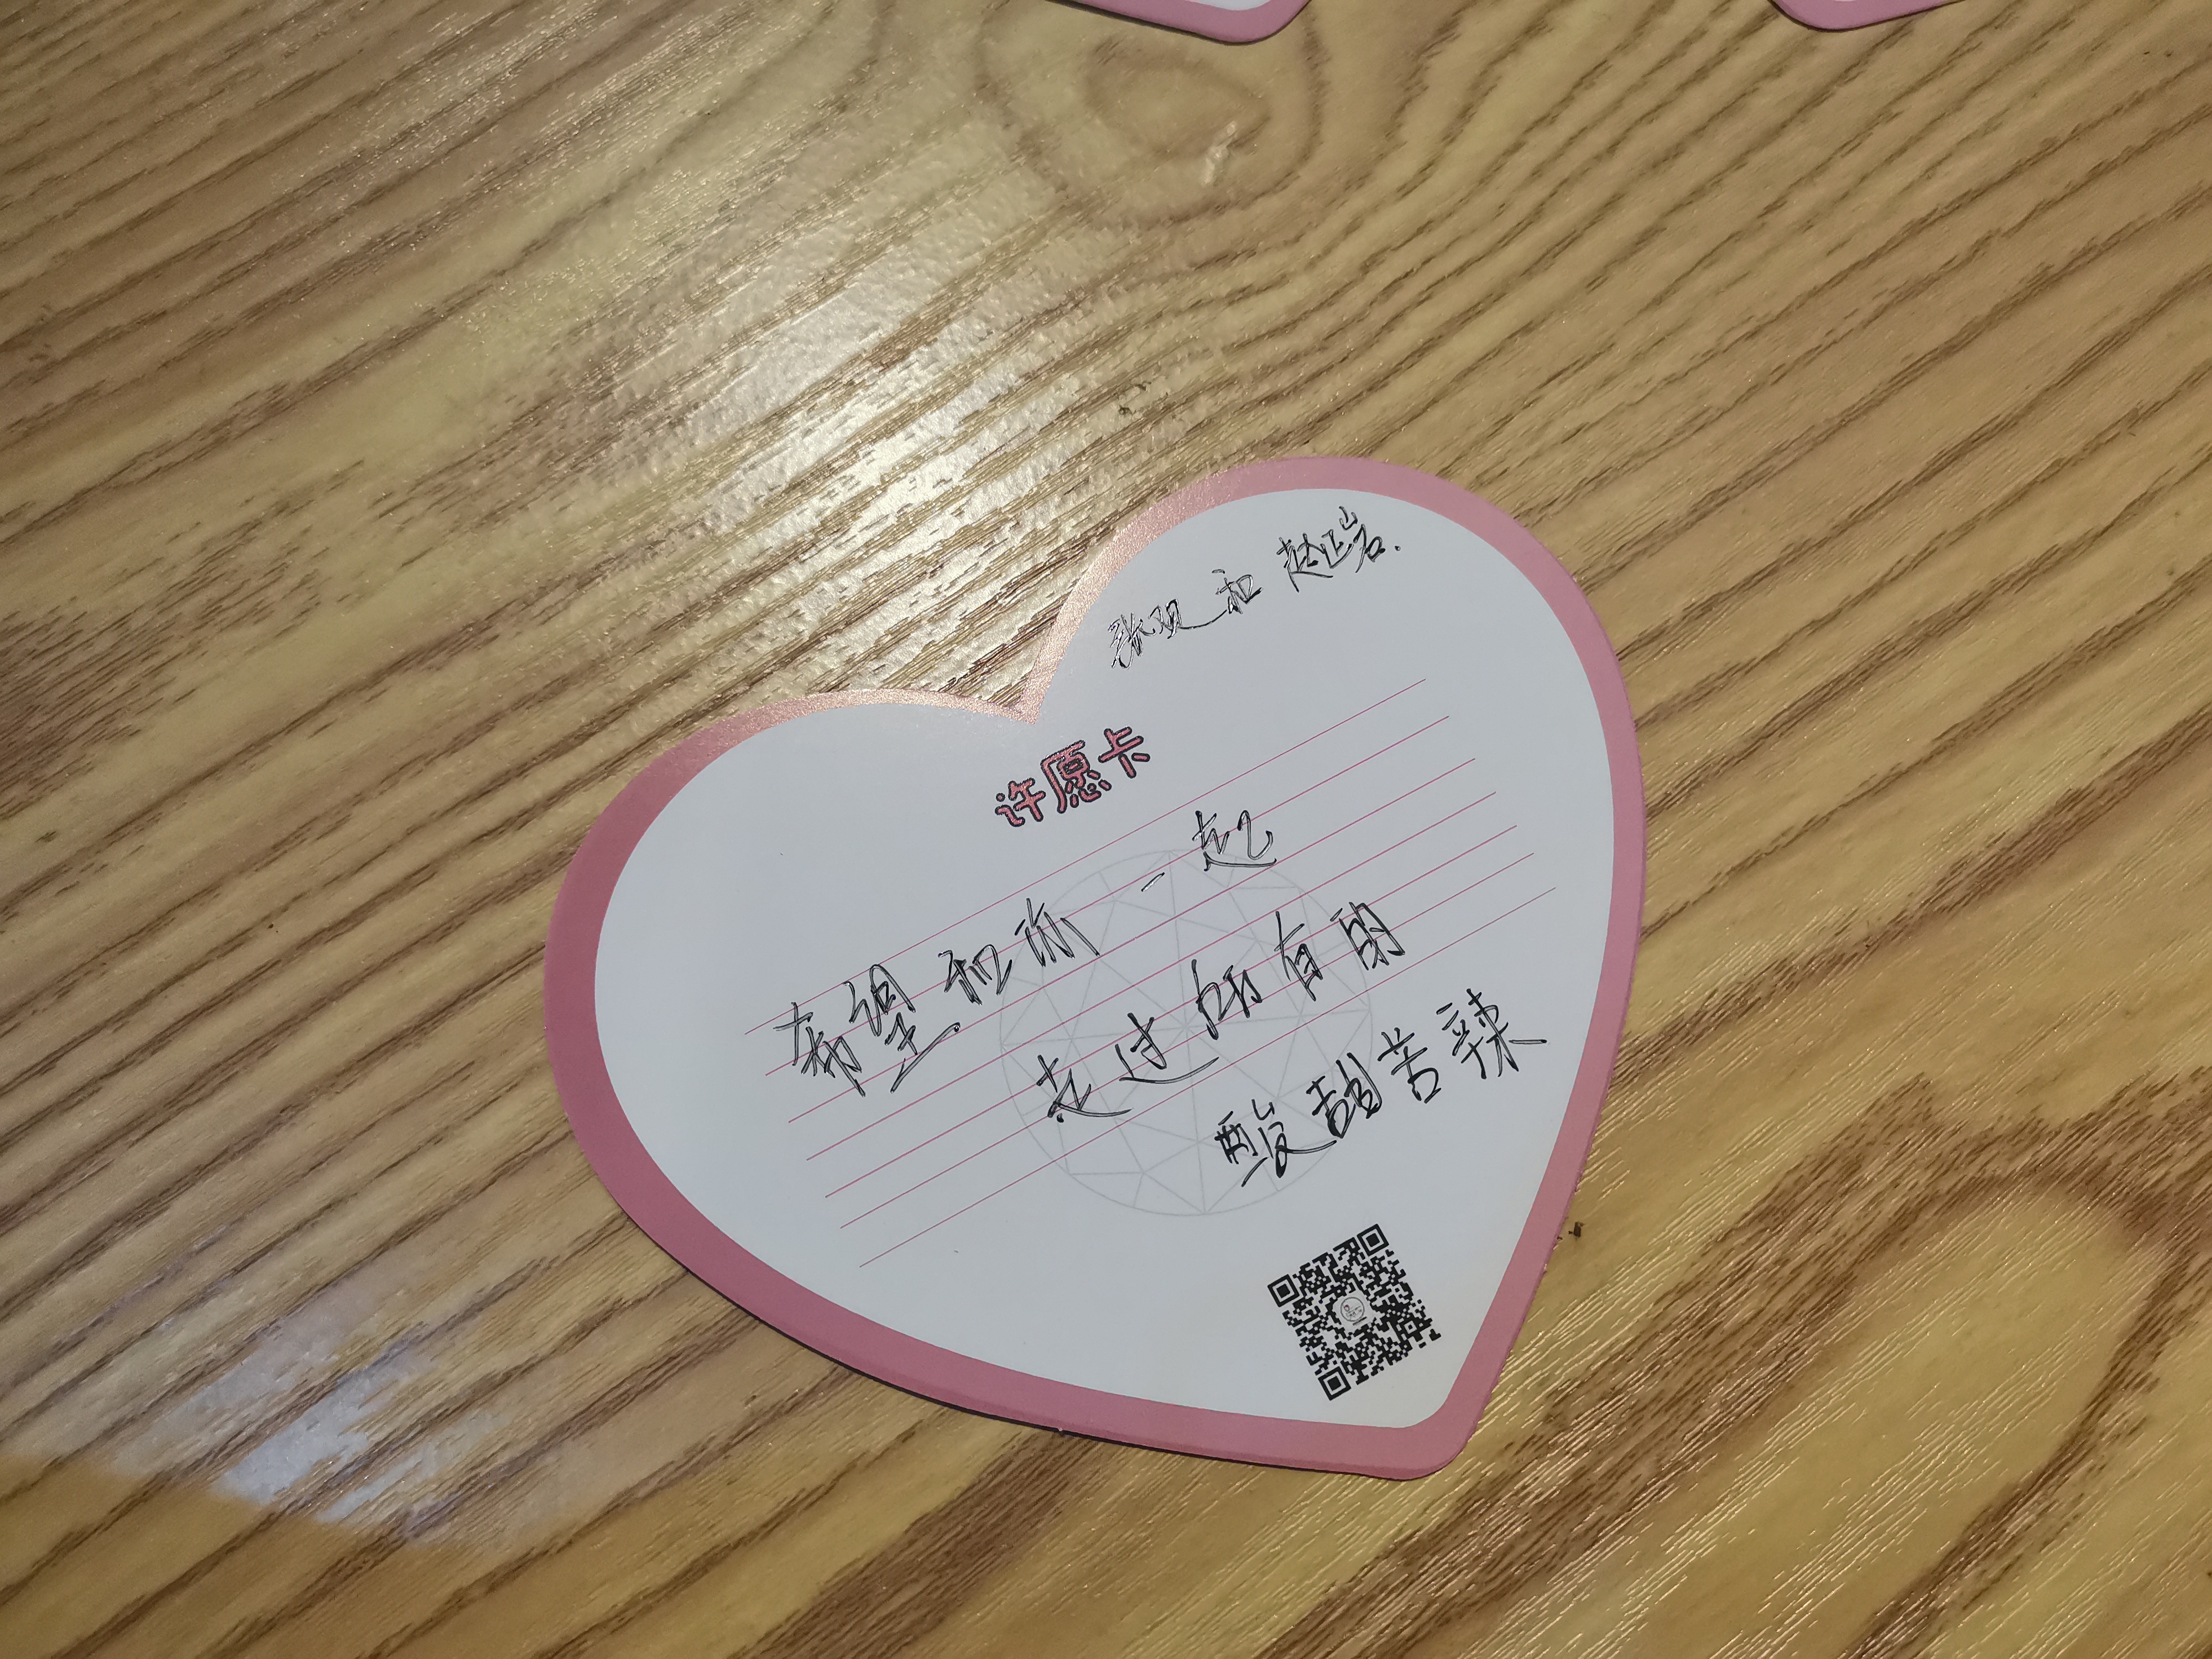 张双和赵正岩.
许愿卡
希望和你一起
走过所有的
酸甜苦辣